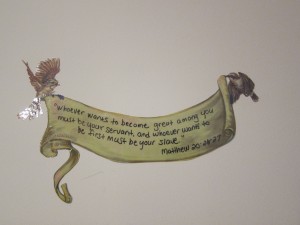 "Whoever wants to become great among you
must be your servant, and whoever wants to
be first must be your slave"
Matthew 20:26-27